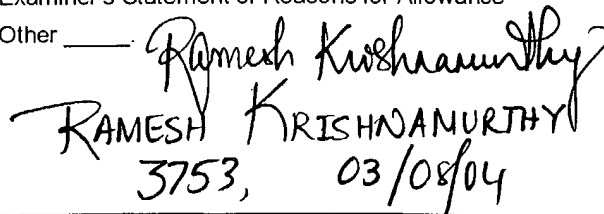 Examiner's Statement of Reasons for Allowance
Other ____.
Ramesh Krishnamurthy
RAMESH KRISHNAMURTHY
3753, 03/08/04